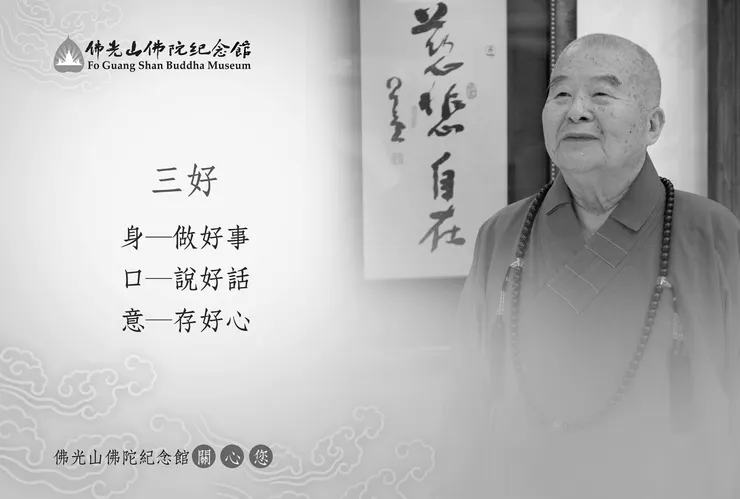 佛光山佛陀紀念館
Fo Guang Shan Buddha Museum
慈悲自在
三好
身—做好事
口—說好話
意—存好心
佛光山佛陀紀念館 關心您